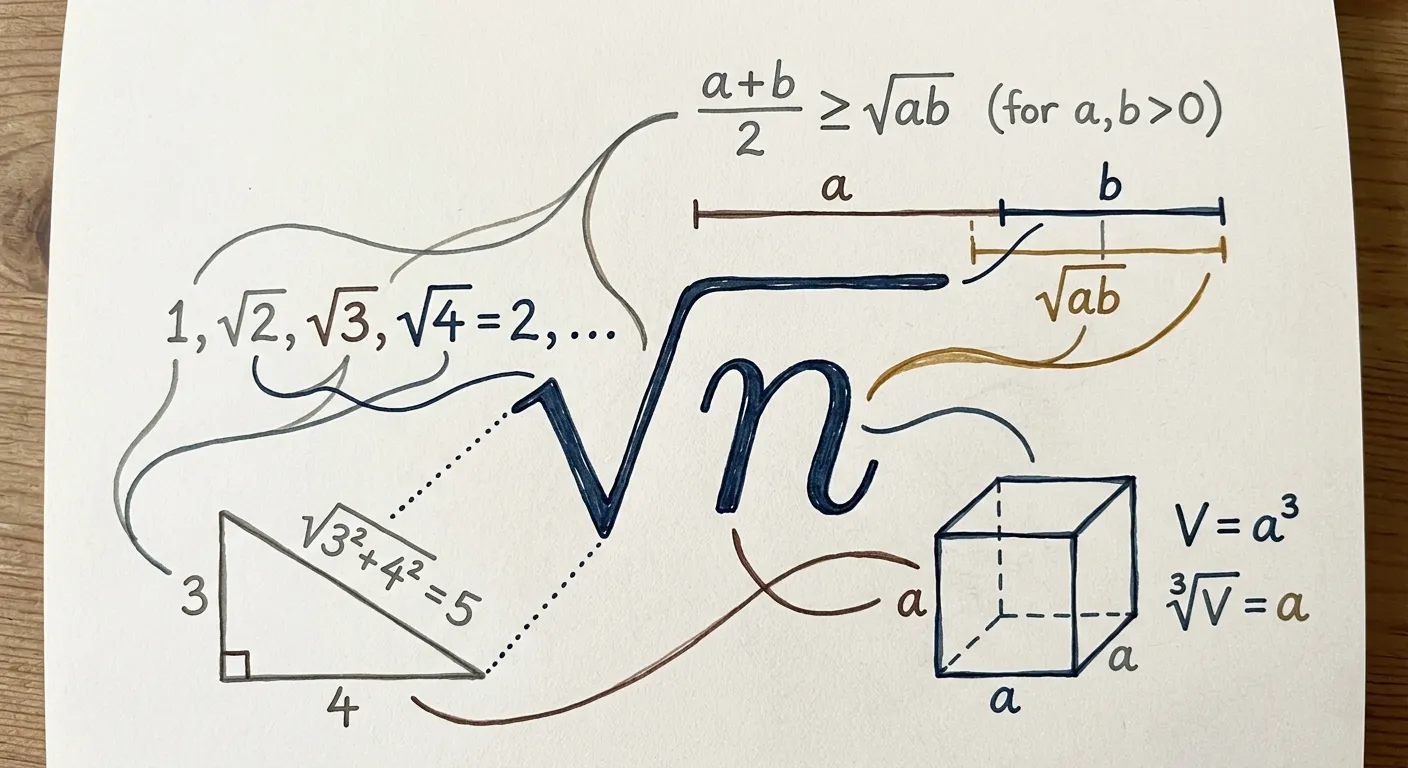 (a+b)/2 ≥ √ab (for a,b>0)
a
b
√ab
1, √2, √3, √4=2, ...
√n
√3²+4²=5
3
4
V=a³
³√V=a
a
a
a